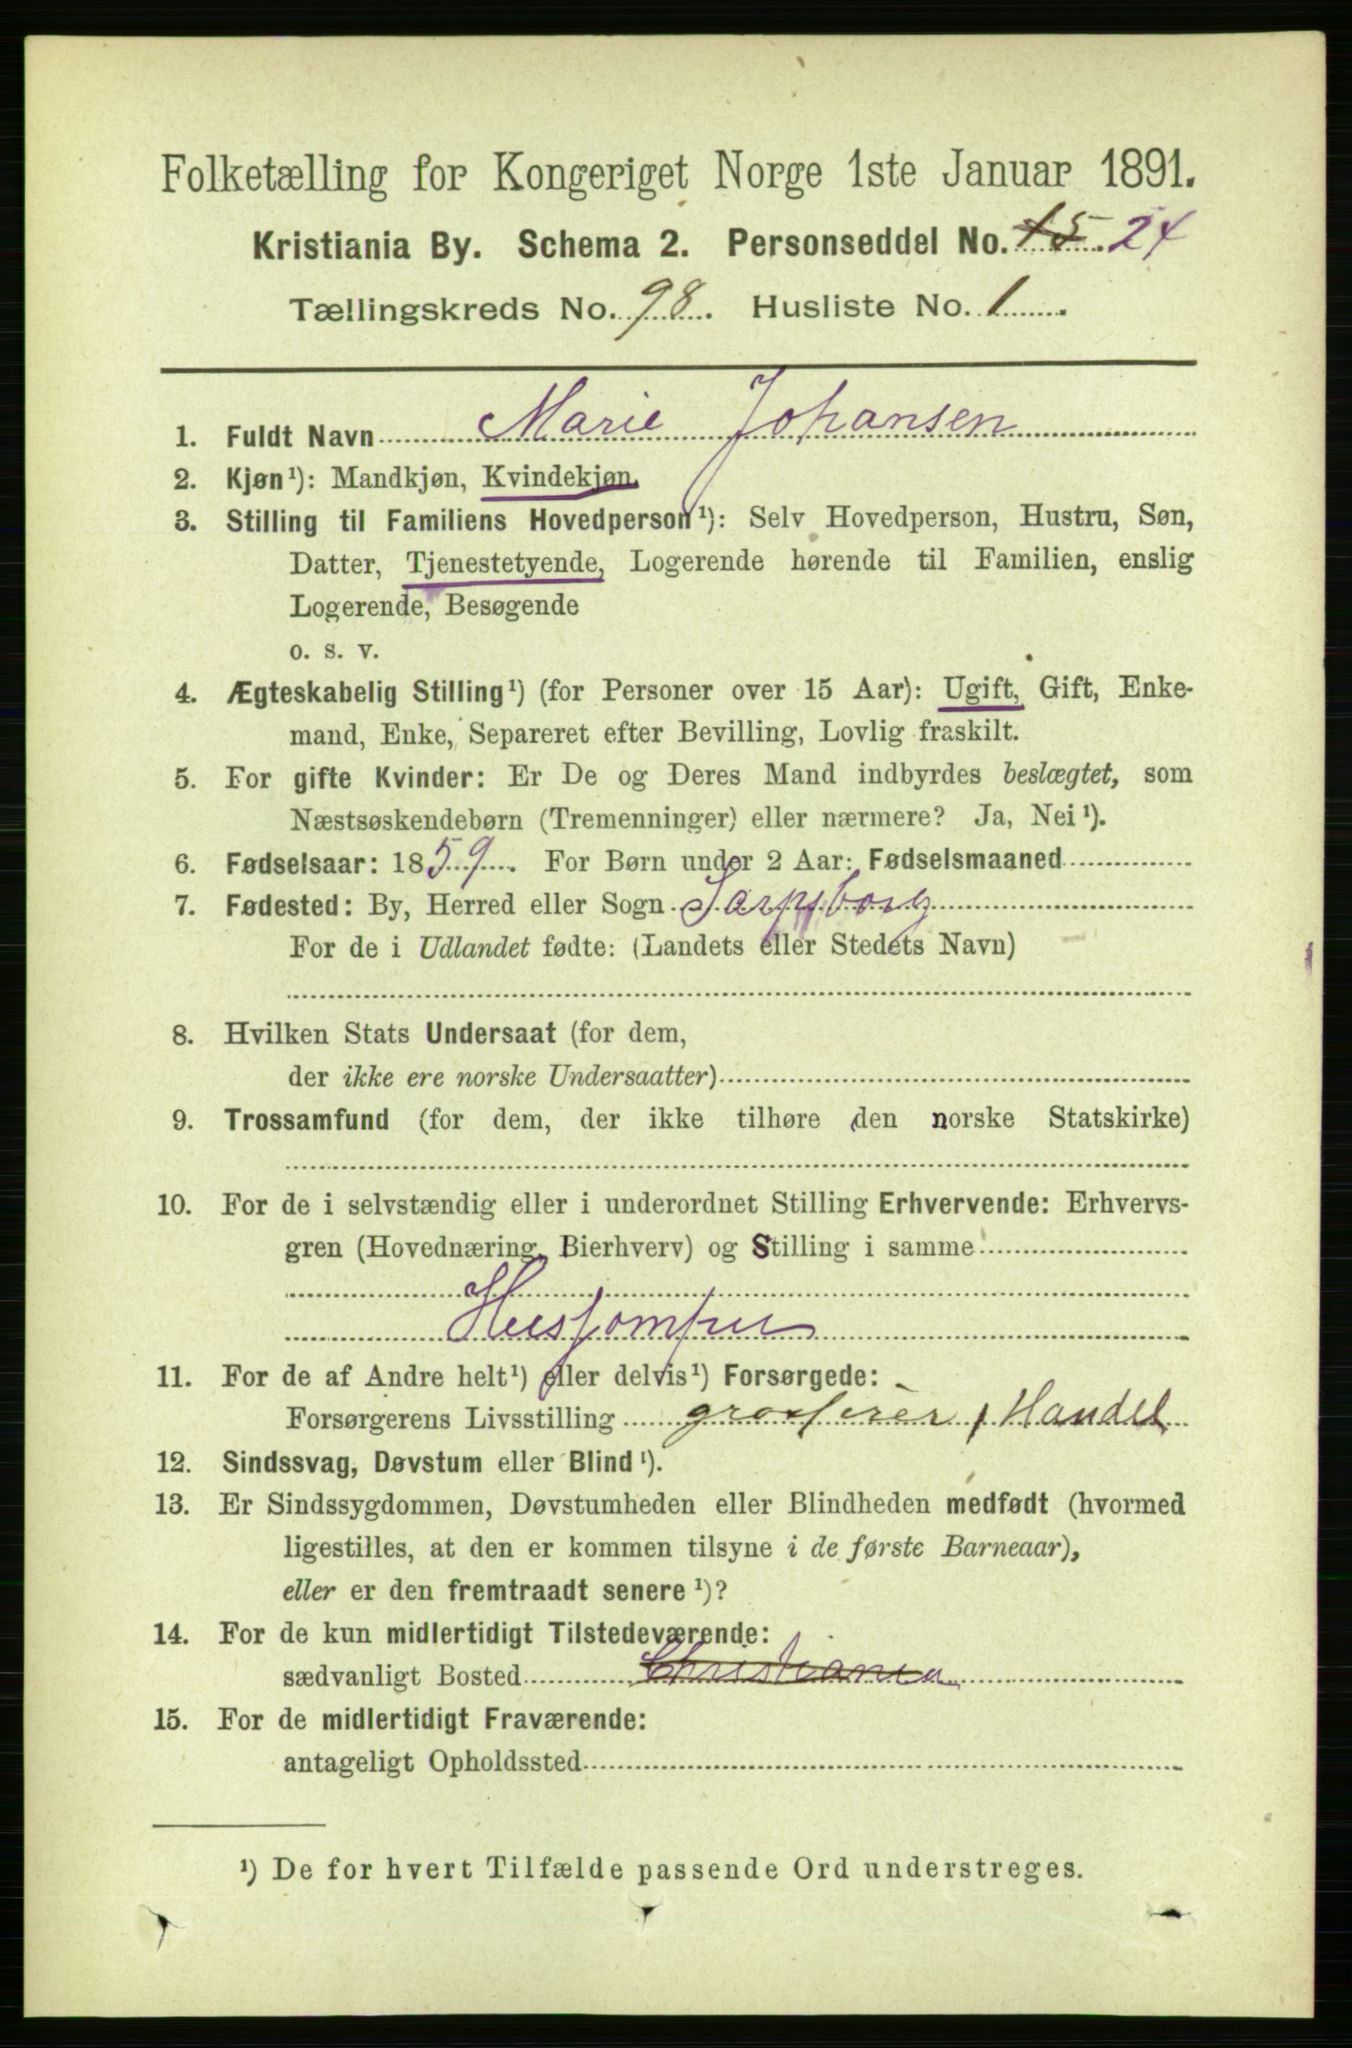 Folketælling for Kongeriget Norge 1ste Januar 1891.
Kristiania By. Schema 2. Personseddel No. 15. 24
Tællingskreds No. 98. Husliste No. 1.
1. Fuldt Navn Marie Johansen
2. Kjøn¹): Mandkjøn, Kvindekjøn.
3. Stilling til Familiens Hovedperson¹): Selv Hovedperson, Hustru, Søn,
Datter, Tjenestetyende, Logerende hørende til Familien, enslig
Logerende, Besøgende
o. s. v.
4. Ægteskabelig Stilling¹) (for Personer over 15 Aar): Ugift, Gift, Enke-
mand, Enke, Separeret efter Bevilling, Lovlig fraskilt.
5. For gifte Kvinder: Er De og Deres Mand indbyrdes beslægtet, som
Næstsøskendebørn (Tremenninger) eller nærmere? Ja, Nei¹).
6. Fødselsaar: 1859. For Børn under 2 Aar: Fødselsmaaned
7. Fødested: By, Herred eller Sogn Sarpsborg
For de i Udlandet fødte: (Landets eller Stedets Navn)
8. Hvilken Stats Undersaat (for dem,
der ikke ere norske Undersaatter)
9. Trossamfund (for dem, der ikke tilhøre den norske Statskirke)
10. For de i selvstændig eller i underordnet Stilling Erhvervende: Erhvervs-
gren (Hovednæring, Bierhverv) og Stilling i samme
Husjomfru
11. For de af Andre helt¹) eller delvis¹) Forsørgede:
Forsørgerens Livsstilling grosserer, Handel
12. Sindssvag, Døvstum eller Blind¹).
13. Er Sindssygdommen, Døvstumheden eller Blindheden medfødt (hvormed
ligestilles, at den er kommen tilsyne i de første Barneaar),
eller er den fremtraadt senere¹)?
14. For de kun midlertidigt Tilstedeværende:
sædvanligt Bosted Christiania
15. For de midlertidigt Fraværende:
antageligt Opholdssted
¹) De for hvert Tilfælde passende Ord understreges.